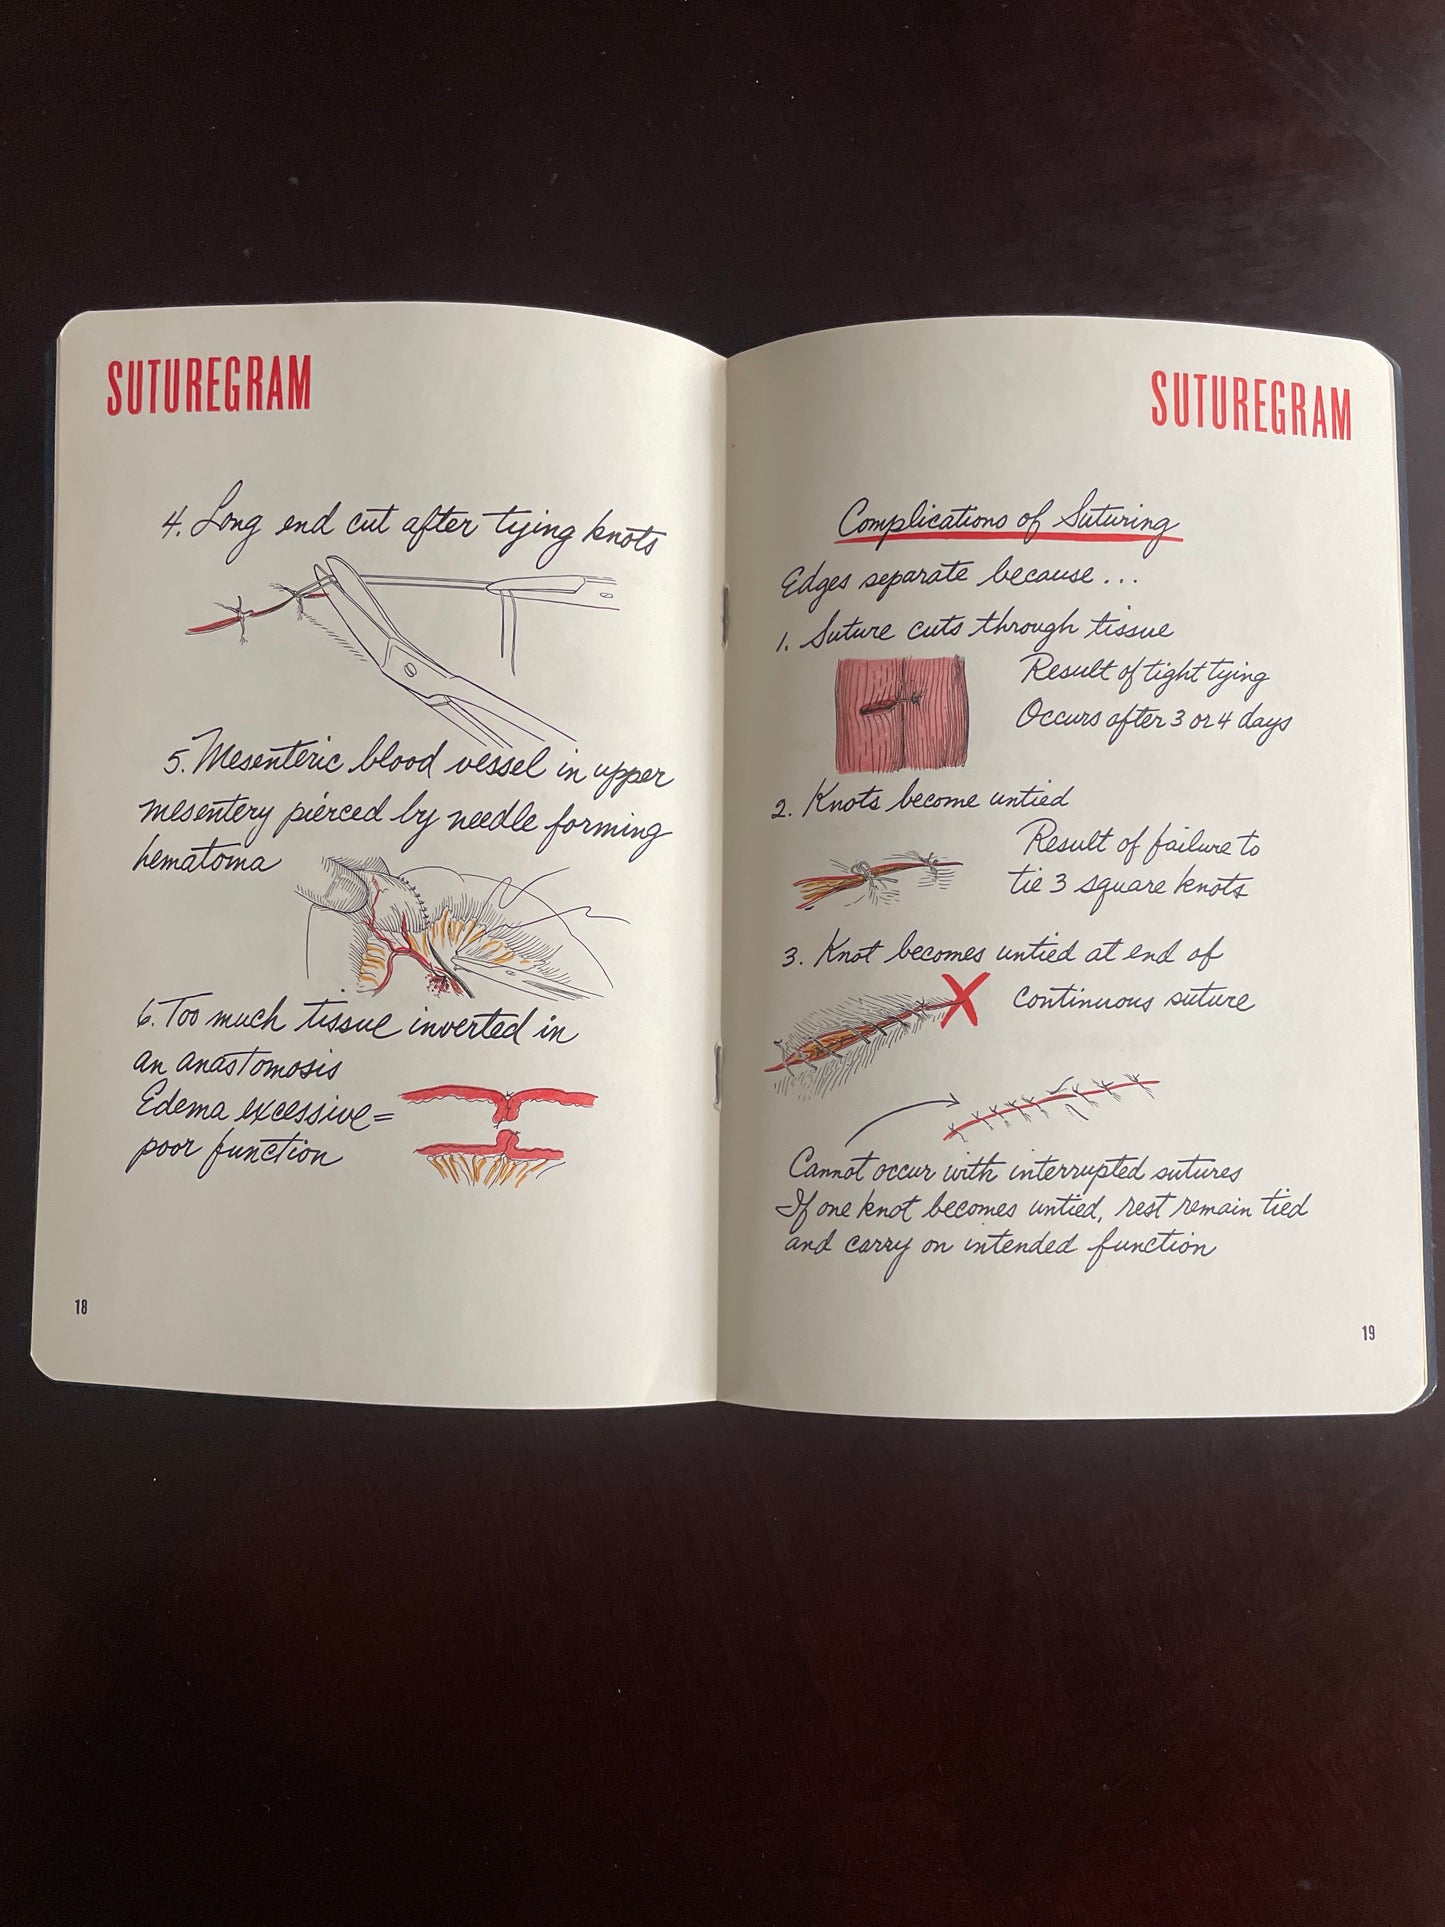 SUTUREGRAM
4. Long end cut after tying knots
5. Mesenteric blood vessel in upper
mesentery pierced by needle forming
hematoma
6. Too much tissue inverted in
an anastomosis
Edema excessive =
poor function
18
SUTUREGRAM
Complications of Suturing
Edges separate because ...
1. Suture cuts through tissue
Result of tight tying
Occurs after 3 or 4 days
2. Knots become untied
Result of failure to
tie 3 square knots
3. Knot becomes untied at end of
continuous suture
Cannot occur with interrupted sutures
If one knot becomes untied, rest remain tied
and carry on intended function
19